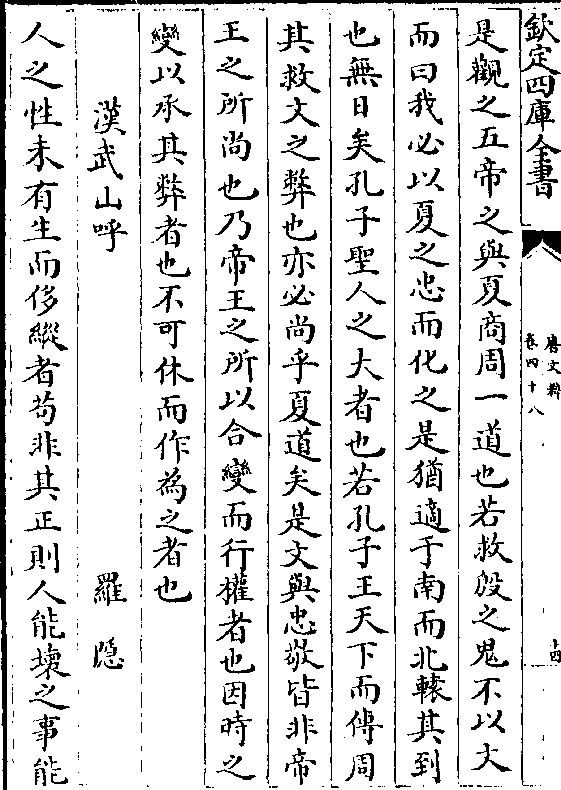 欽定四庫全書
唐文粹
卷四十八
十四
是觀之五帝之與夏商周一道也若救殷之鬼不以大
而曰我必以夏之忠而化之是猶適于南而北轅其到
也無日矣孔子聖人之大者也若孔子王天下而傳周
其救文之弊也亦必尚乎夏道矣是文與忠敬皆非帝
王之所尚也乃帝王之所以合變而行權者也因時之
變以承其弊者也不可休而作為之者也
漢武山呼 羅隱
人之性未有生而侈縱者茍非其正則人能壞之事能